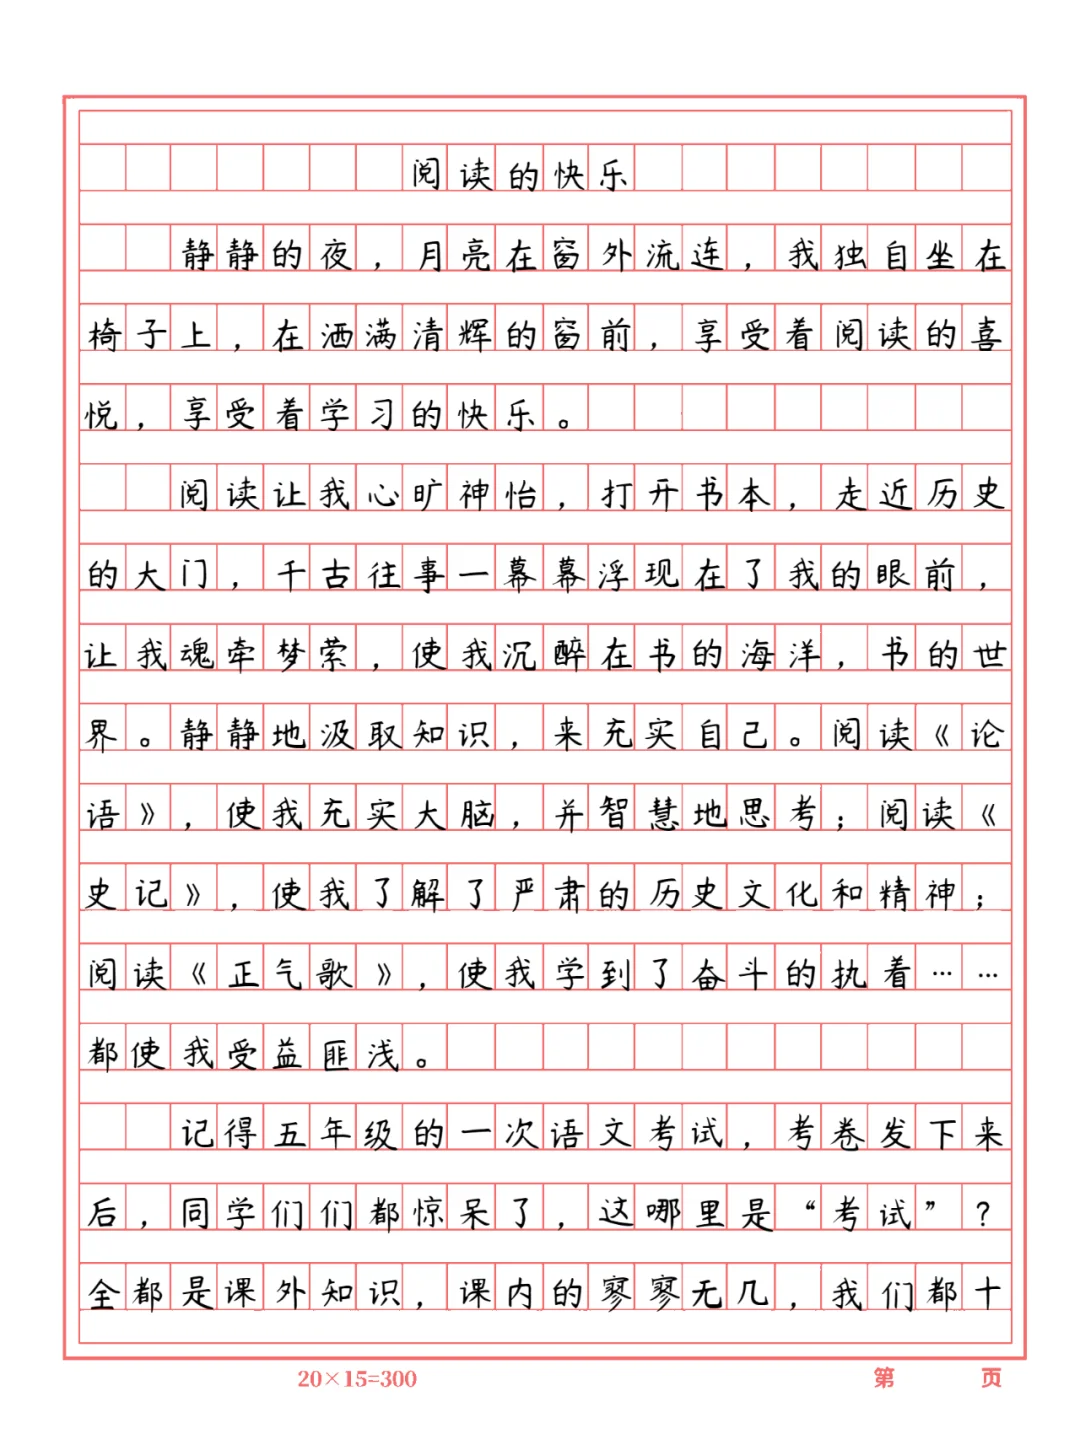 阅读的快乐
静静的夜，月亮在窗外流连，我独自坐在
椅子上，在洒满清辉的窗前，享受着阅读的喜
悦，享受着学习的快乐。
阅读让我心旷神怡，打开书本，走近历史
的大门，千古往事一幕幕浮现在了我的眼前，
让我魂牵梦萦，使我沉醉在书的海洋，书的世
界。静静地汲取知识，来充实自己。阅读《论
语》，使我充实大脑，并智慧地思考；阅读《
史记》，使我了解了严肃的历史文化和精神；
阅读《正气歌》，使我学到了奋斗的执着……
都使我受益匪浅。
记得五年级的一次语文考试，考卷发下来
后，同学们们都惊呆了，这哪里是“考试”？
全都是课外知识，课内的寥寥无几，我们都十
20×15=300
第 页